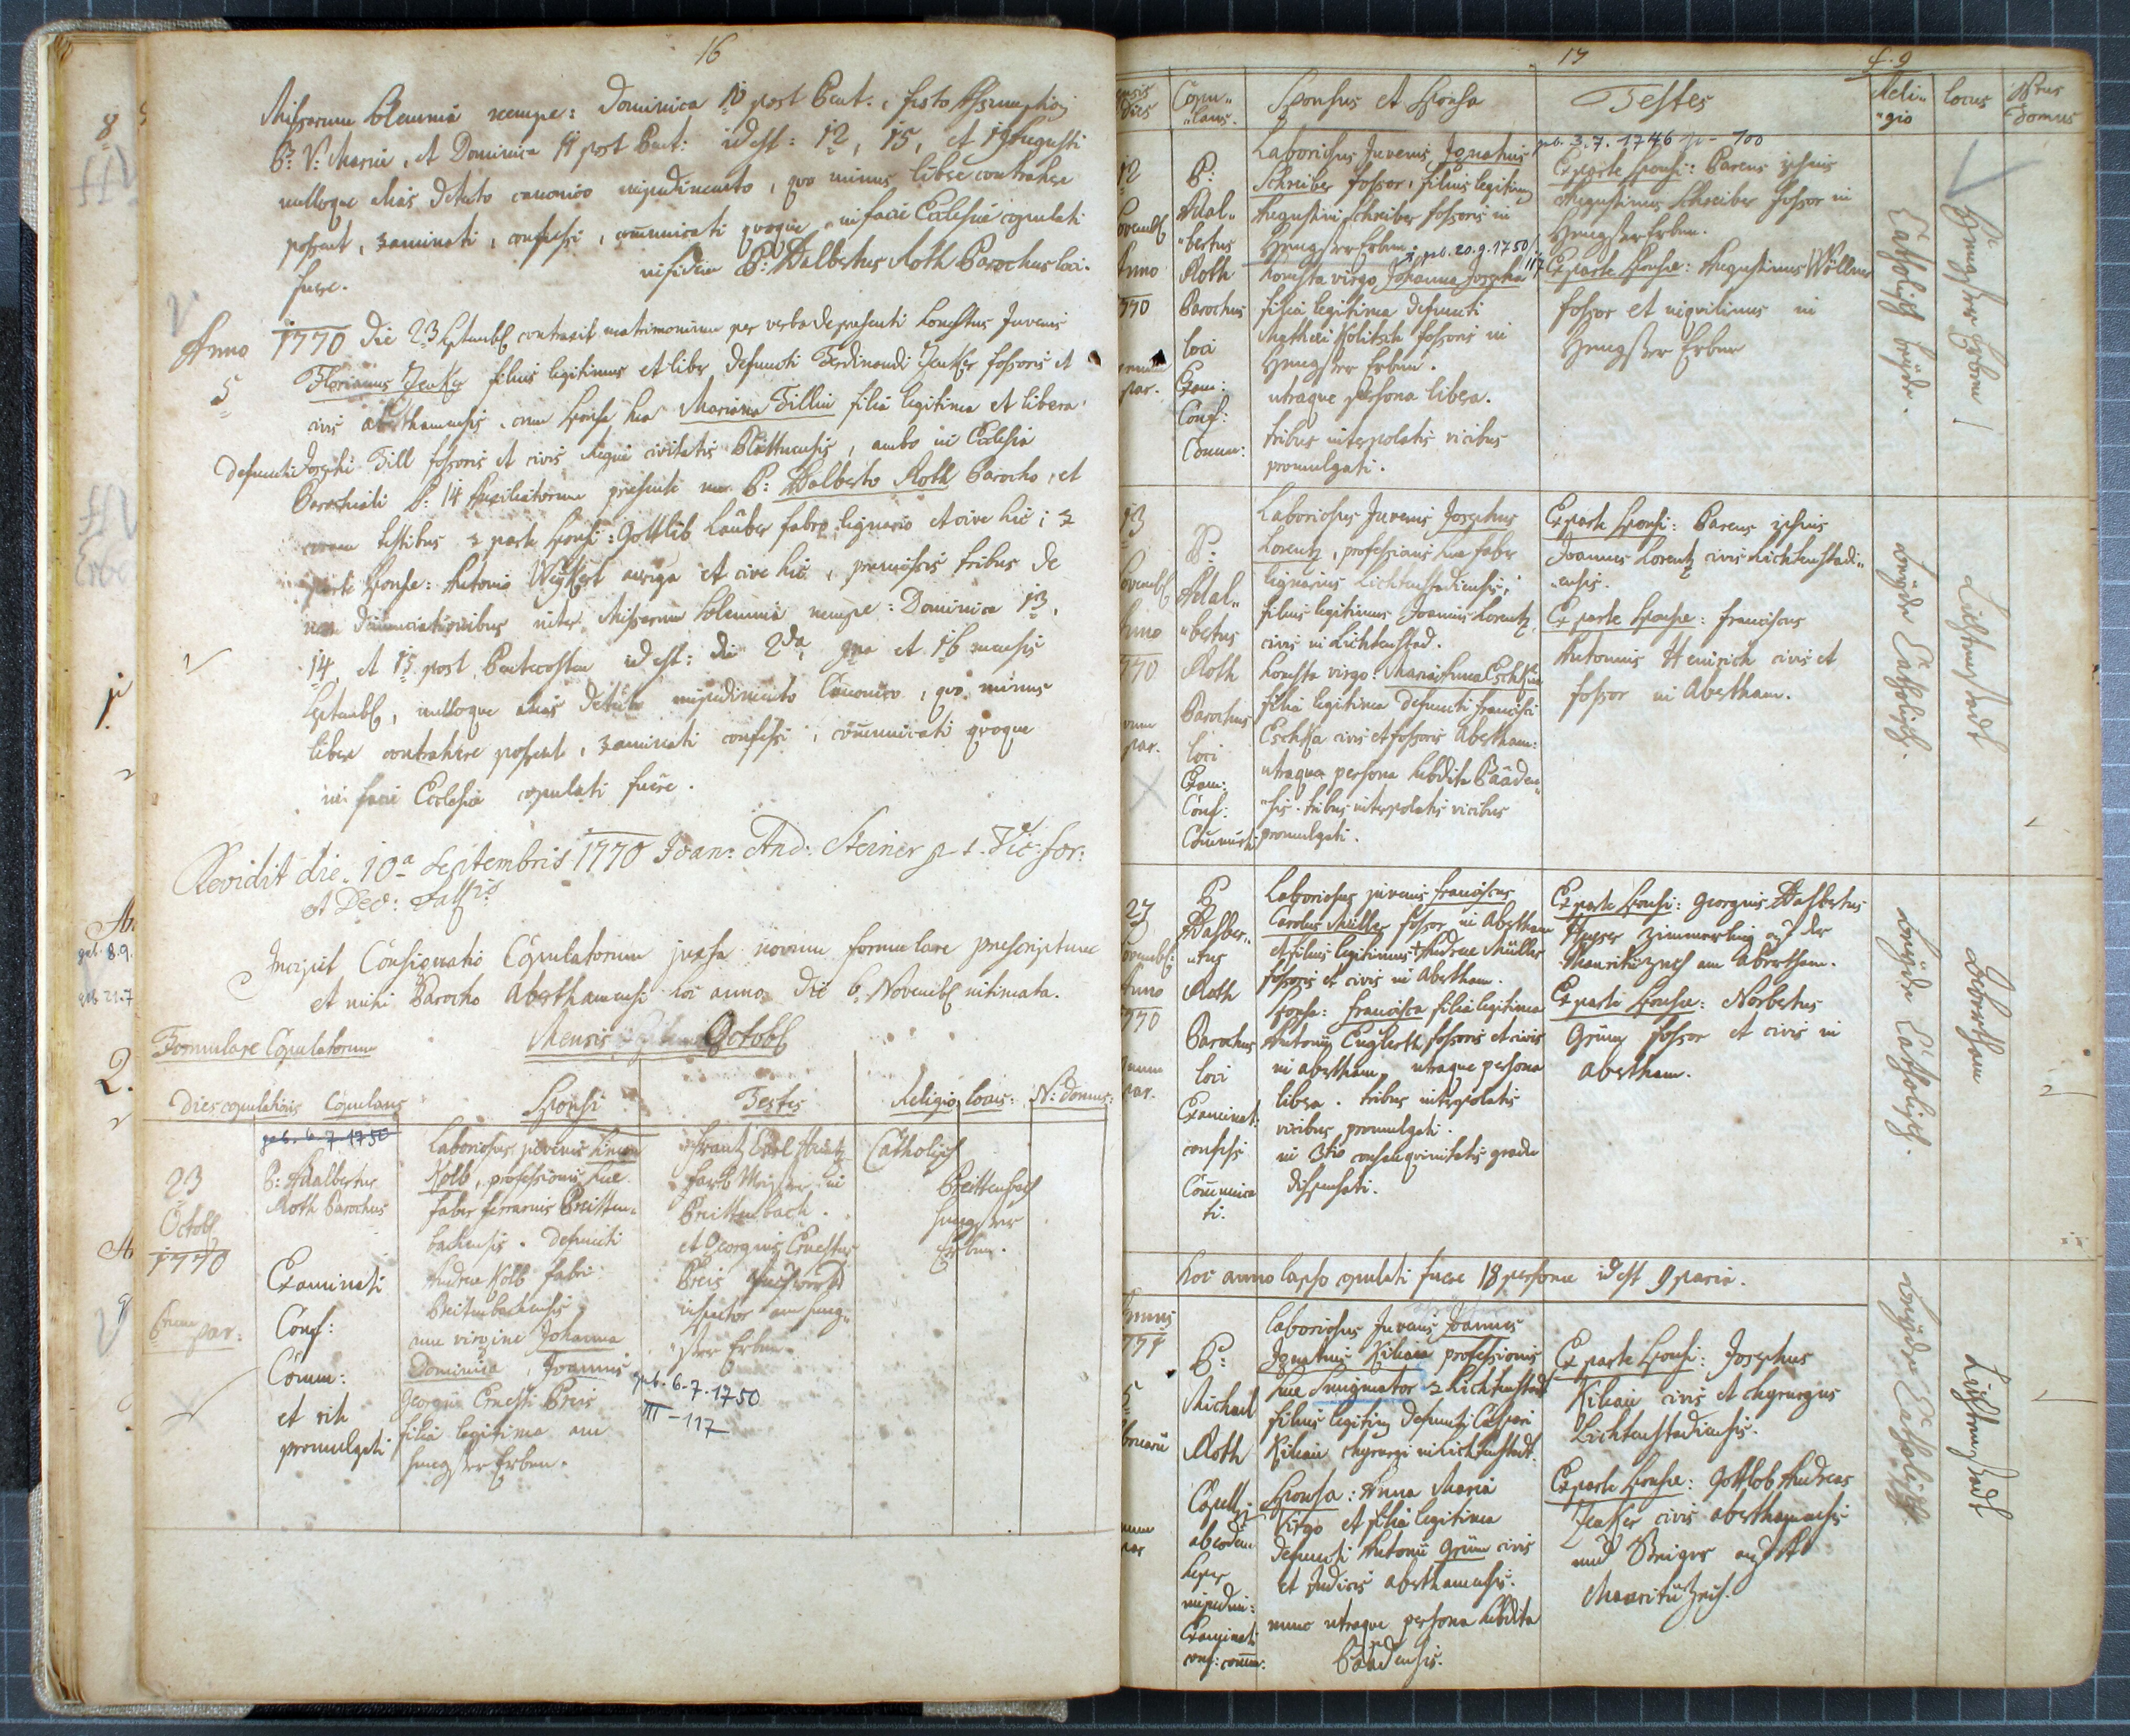 16
Missarum solemnia nempe: Dominica 10 post Pent. festo Assumptionis
B: V: Mariæ, et Dominica 11 post Pent: id est: 12, 15, et 19 Augusti
nulloque alias detecto canonico impedimento, quo minus libere contrahere
possent, examinati, confessi, communicati quoque in facie Ecclesiæ copulati
fuere.
P: Adalbertus Roth Parochus loci.
Anno 1770 Die 23 Septembr contraxit matrimonium per verba de presenti honestus Juvenis
5
Florianus Jenker filius legitimus et liber defuncti Ferdinandi Jenker fossoris et
civis aberthamensis, cum sponsa sua Mariana Tillin filia legitima et libera
defuncti Josephi Till fossoris et civis Regiæ civitatis Plattnensis, ambo in Ecclesia
Parochiali S: 14 Auxiliatorum presente me P: Adalberto Roth Parocho, et
coram testibus ex parte sponsi: Gottlib Lauber fabro lignario et cive hic; ex
parte sponsæ: Antonio Weÿkert auriga et cive hic, præmissis tribus de
nunciationibus inter Missarum solemnia nempe: Dominica 13,
14, et 15 post Pentecosten id est: die 2da, 9na et 16 mensis
Septembr, nulloque alias detecto impedimento Canonico, quo minus
libere contrahere possent, examinati confessi, communicati quoque
in facie Ecclesiæ copulati fuere.
Revidit die. 10a Septembris 1770 Joan: And: Steiner p. t. Vic: for:
et Dec:
Incipit Consignatio Copulatorum juxta novum formulare præscriptum
et mihi Parocho Aberthamensi hoc anno die 6 Novembr intimata.
Formulare Copulatorum
Mensis Octobr
Dies copulationis Copulans Sponsi Testes Religio locus: N: domus:
geb. 6.7.1750
23
Octobr
1770
par:
P: Adalbertus
Roth Parochus
Examinati
Conf:
Comm:
et rite
promulgati
Laboriosus juvenis
Kolb, professionis suæ
faber ferrarius Breitten-
bachensis. defuncti
Andreæ Kolb fabri
Breitenbachensis
cum virgine Johanna
Dominica, Joannis
Georgii Ernesti Preis
filia legitima am
Hengster Erben.
Frantz Carl
Farb Meister in
Breittenbach.
et Georgius Ernestus
Preis
inspector am Heng-
ster Erben.
geb. 6.7.1750
III-117
Catholisch
Breittenbach
Hengster
Erben.
17
f. 9
Copu-
-lans.
Sponsus et Sponsa
Testes
Reli-
-gio
locus
Nrus
Domus
12
Novembr
Anno
1770
par.
P:
Adal-
-bertus
Roth
Parochus
loci
Exam:
Conf:
Comm:
Laboriosus Juvenis Ignatius
Schreiber fossor, filius legitimus
Augustini Schreiber fossoris in
Hengster Erben.
geb. 20.9.1750
honesta virgo Johanna Josepha
filia legitima defuncti
Mathæi Kolitsch fossoris in
Hengster Erben.
utraque persona libera.
tribus interpolatis vicibus
promulgati.
geb. 3.7.1746
Ex parte sponsi: Parens ipsius
Augustinus Schreiber fossor in
Hengster Erben.
Ex parte sponsæ: Augustinus Wöllner
fossor et inquilinus in
Hengster Erben
Catholisch beÿde.
Hengster Erben
13
Novembr
Anno
1770
par.
P:
Adal-
-bertus
Roth
Parochus
loci
Exam:
Conf:
Laboriosus Juvenis Josephus
Lorentz, professionis suæ faber
lignarius Lichtenstadiensis,
filius legitimus Joannis Lorentz
civis in Lichtenstad.
honesta virgo: Maria Anna
filia legitima defuncti Francisci
civis et fossoris Abertham:
utraque persona subdita Baaden-
-sis. tribus interpolatis vicibus
promulgati.
Ex parte sponsi: Parens ipsius
Joannes Lorentz civis Lichtenstadi-
-ensis.
Ex parte sponsæ: Franciscus
Antonius Heinrich civis et
fossor in Abertham.
beÿde Catholisch.
Lichtenstadt
27
Novembr:
Anno
1770
par.
P
Adalber-
-tus
Roth
Parochus
loci
Examinat:
confessi
Communica
ti.
Laboriosus juvenis Franciscus
Carolus Müller fossor in Abertham
et filius legitimus Andreæ Müller
fossoris et civis in Abertham.
Sponsa: Francisca filia legitima
Antonii Englerth fossoris et civis
in abertham, utraque persona
libera. tribus interpolatis
vicibus promulgati.
in 3tio consanguinitatis gradu
dispensati.
Ex parte sponsi: Georgius Adalbertus
Heyser Zimmerling auf der
Mauritiizech am Abertham.
Ex parte sponsæ: Norbertus
Grüner fossor et civis in
Abertham.
beÿde Catholisch.
Abertham
2
hoc anno lapso copulati fuere 18 personæ id est 9 paria.
Annus
5
P:
Michael
Roth
Capell:
impedim:
Examinati
conf: comm:
laboriosus Juvenis Joannes
Ignatius Kilian professionis
suæ Smigmator ex Lichtenstadt
filius legitimus defuncti Caspari
Kilian chyrurgi in Lichtenstadt.
Sponsa: Anna Maria
virgo et filia legitima
defuncti Antonii Grüner civis
et Judicis aberthamensis.
nunc utraque persona subdita
Baadensis.
Ex parte sponsi: Josephus
Kilian civis et chyrurgus
Lichtenstadiensis.
Ex parte sponsæ: Gottlob Andreas
Jenker civis aberthamensis
und Steiger auf der
Mauritii Zech.
beÿde Catholisch.
Lichtenstadt